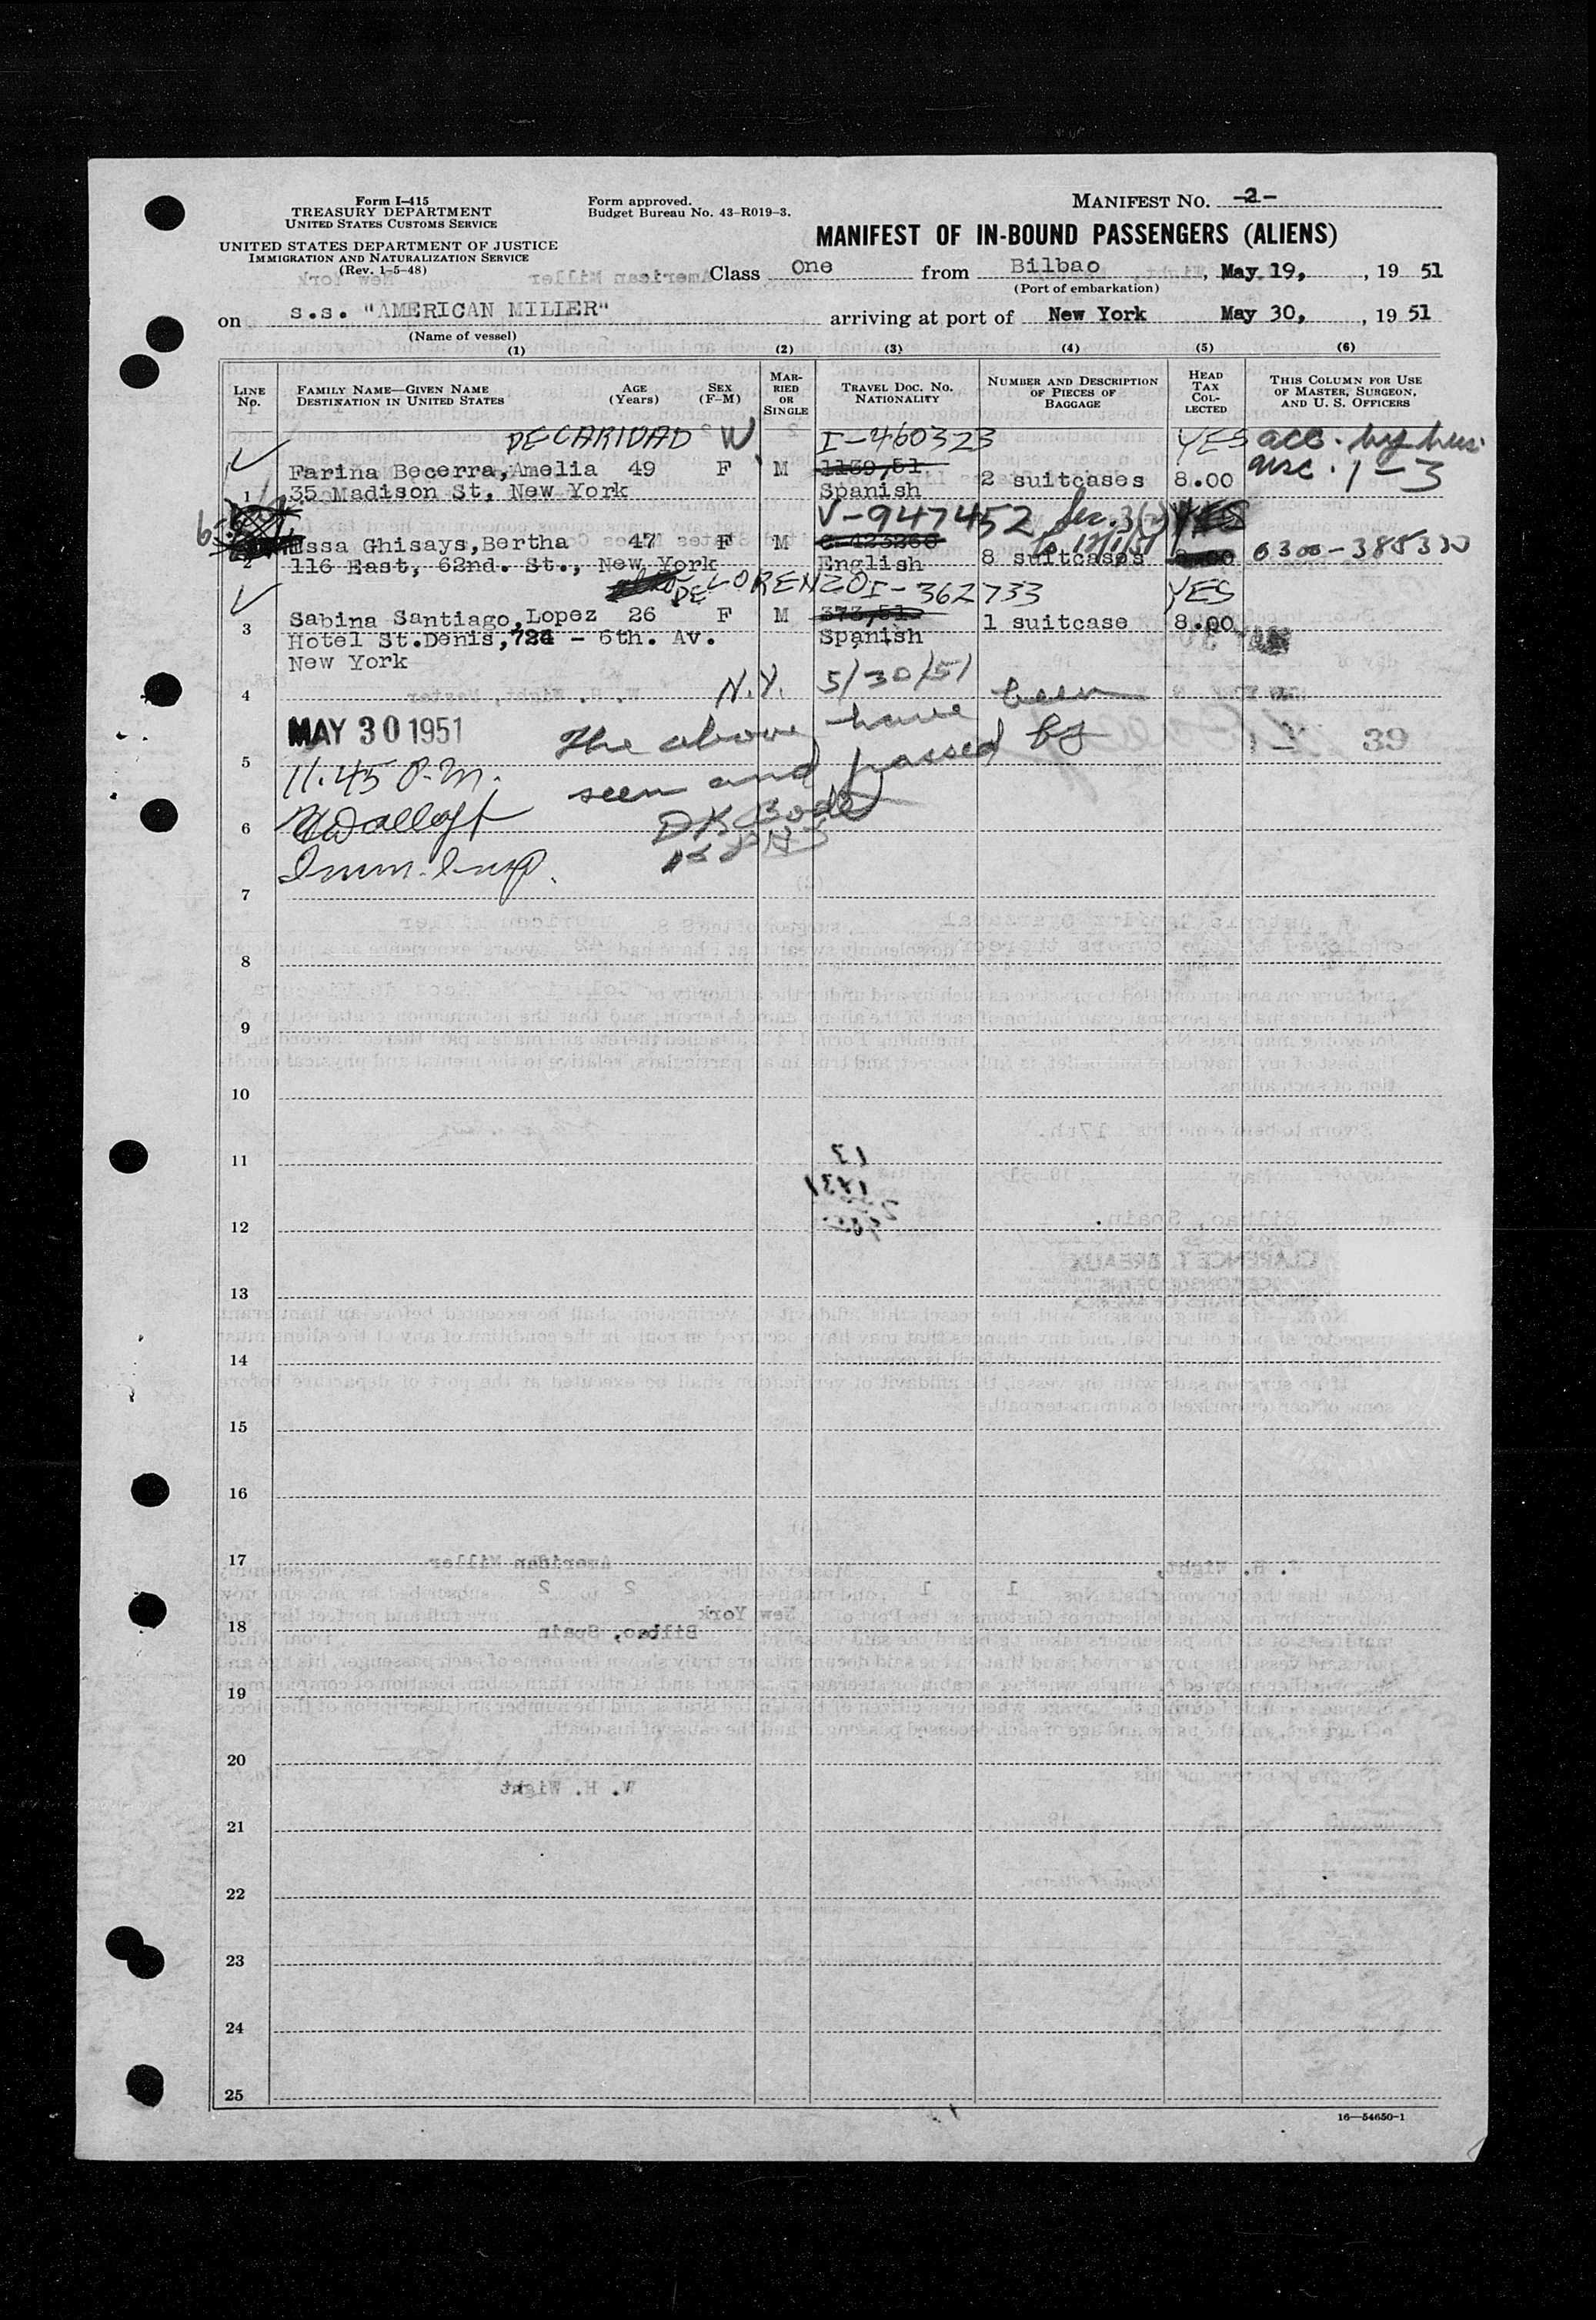 Form I-415
TREASURY DEPARTMENT
UNITED STATES CUSTOMS SERVICE
UNITED STATES DEPARTMENT OF JUSTICE
IMMIGRATION AND NATURALIZATION SERVICE
(Rev. 1-5-48)
Form approved.
Budget Bureau No. 43-R019-3.
MANIFEST NO. -2-
MANIFEST OF IN-BOUND PASSENGERS (ALIENS)
Class One from Bilbao, May 19, 19 51
(Port of embarkation)
on s.s. "AMERICAN MILLER" arriving at port of New York May 30, 19 51
(Name of vessel)
(1) (2) (3) (4) (5) (6)
LINE No.
FAMILY NAME—GIVEN NAME
DESTINATION IN UNITED STATES
AGE (Years)
SEX (F-M)
MARRIED OR SINGLE
TRAVEL DOC. NO.
NATIONALITY
NUMBER AND DESCRIPTION OF PIECES OF BAGGAGE
HEAD TAX COLLECTED
THIS COLUMN FOR USE OF MASTER, SURGEON, AND U. S. OFFICERS
DE CARIDAD W. I-460323 YES acc. by hus.
Farina Becerra, Amelia 49 F M 1139,51. 2 suitcases 8.00 1-3
1 35 Madison St, New York Spanish
V-947452 Sec. 3(2) YES
Essa Ghisays, Bertha 47 F M 8 suitcases 8.00 0300-385330
2 116 East, 62nd. St., New York English
DE LORENZO I-362733 YES
3 Sabina Santiago, Lopez 26 F M 373,51. 1 suitcase 8.00
Hotel St.Denis, 724 - 6th. Av. Spanish
New York
4 N.Y. 5/30/51
MAY 30 1951 The above have been
5 11.45 P.M. seen and passed by
6 D K Bode
Imm. Insp.
7
8
9
10
11
12
13
14
15
16
17
18
19
20
21
22
23
24
25
16—54650-1